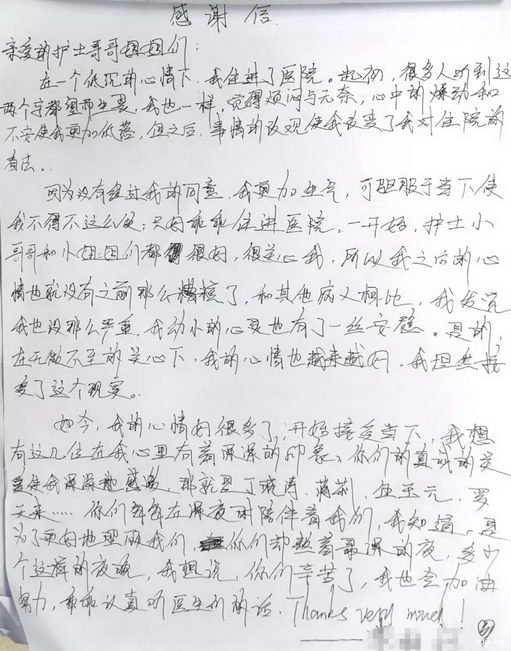 感谢信
亲爱的护士哥哥姐姐们：
在一个低沉的心情下，我住进了医院。起初，很多人听到这
两个字都望而生畏，我也一样，觉得烦闷与无奈，心中的燥动和
不安使我更加低落，但之后，事情的改观使我改变了我对住院的
看法。
因为没有经过我的同意，我更加生气，可屈服于当下使
我不得不这么做；只好乖乖住进医院，一开始，护士小
哥哥和小姐姐们都很好，很关心我，所以我之后的心
情也就没有之前那么糟糕了，和其他病人相比，我发觉
我也没那么严重，我幼小的心灵也有了一丝安稳。是的，
在无微不至的关心下，我的心情也越来越好，我坦然接
受了这个现实。
如今，我的心情好很多了，开始接受当下，我想
有这几位在我心里有着深深的印象。你们的真诚的关
爱使我深深地感动，那就是丁晓涛，
天来……你们每每在深夜时陪伴着我们，我知道，是
为了更好地理顾我们，你们却熬着最深的夜，多少
个这样的夜晚，我想说，你们辛苦了，我也会加油
努力，乖乖认真听医生们的话，Thanks very much!